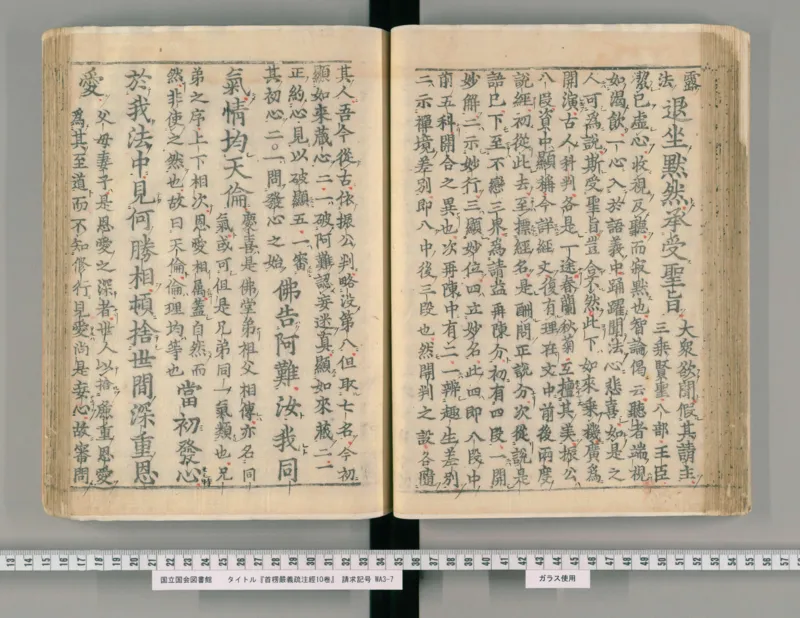 靈
法
退坐黙然承受聖旨
大衆欲聞假其請主
三乘賢聖八部王臣
潔已虛心收視反聽而寂黙也智論偈云聽者端視
如渴飲一心入於語義中踊躍聞法心悲喜如是之
人可為説斯受聖旨豈合不然此下如來乘機廣為
開演古人科判各是一途春蘭秋菊互擅其美振公
八段資中顯稱今詳經文後有理在文中前後兩度
説經初從此去至摽經名是酬問正説分次從説是
語已下至不戀三界為請益再陳分初有四段一開
妙解二示妙行三顯妙位四立妙名此四即八段中
前五科開合之異也次再陳中有二一辨趣生差別
二示禪境差別即八中後三段也然開判之設各隨
其人吾今從古依振公判略沒第八但取七名今初
顯如來藏心二一破阿難認妄迷真顯如來藏二二
正約心見以破顯五一審
其初心二〇一問發心之始
佛告阿難汝我同
氣情均天倫
慶喜是佛堂弟祖父相傳亦名同
氣或可但是兄弟同一氣類也兄
弟之序上下相次恩愛相屬蓋自然而
然非使之然也故曰天倫倫理均等也
當初發心
於我法中見何勝相頓捨世間深重恩
愛
父母妻子是恩愛之深者世人以捨重恩愛
為其至道而不知修行見愛尚是妄心故審問
国立国会図書館 タイトル『首楞嚴義疏注經10巻』 請求記号 WA3-7
ガラス使用